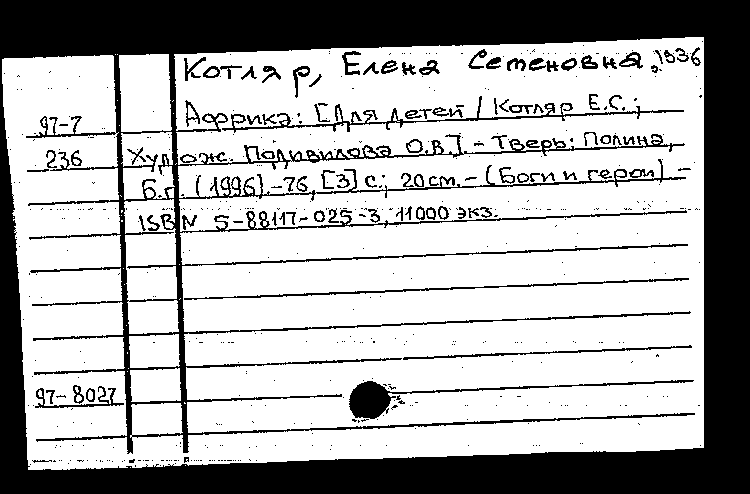 Котляр, Елена Семеновна, 1936
97-7 Африка: [Для детей / Котляр Е.С.;
236 Худож. Подивилова О.В.]. - Тверь: Полина,
Б.г. (1996).-76, [3] с.; 20см. - (Боги и герои) -
ISBN 5-88117-025-3, 11000 экз.
97-8027